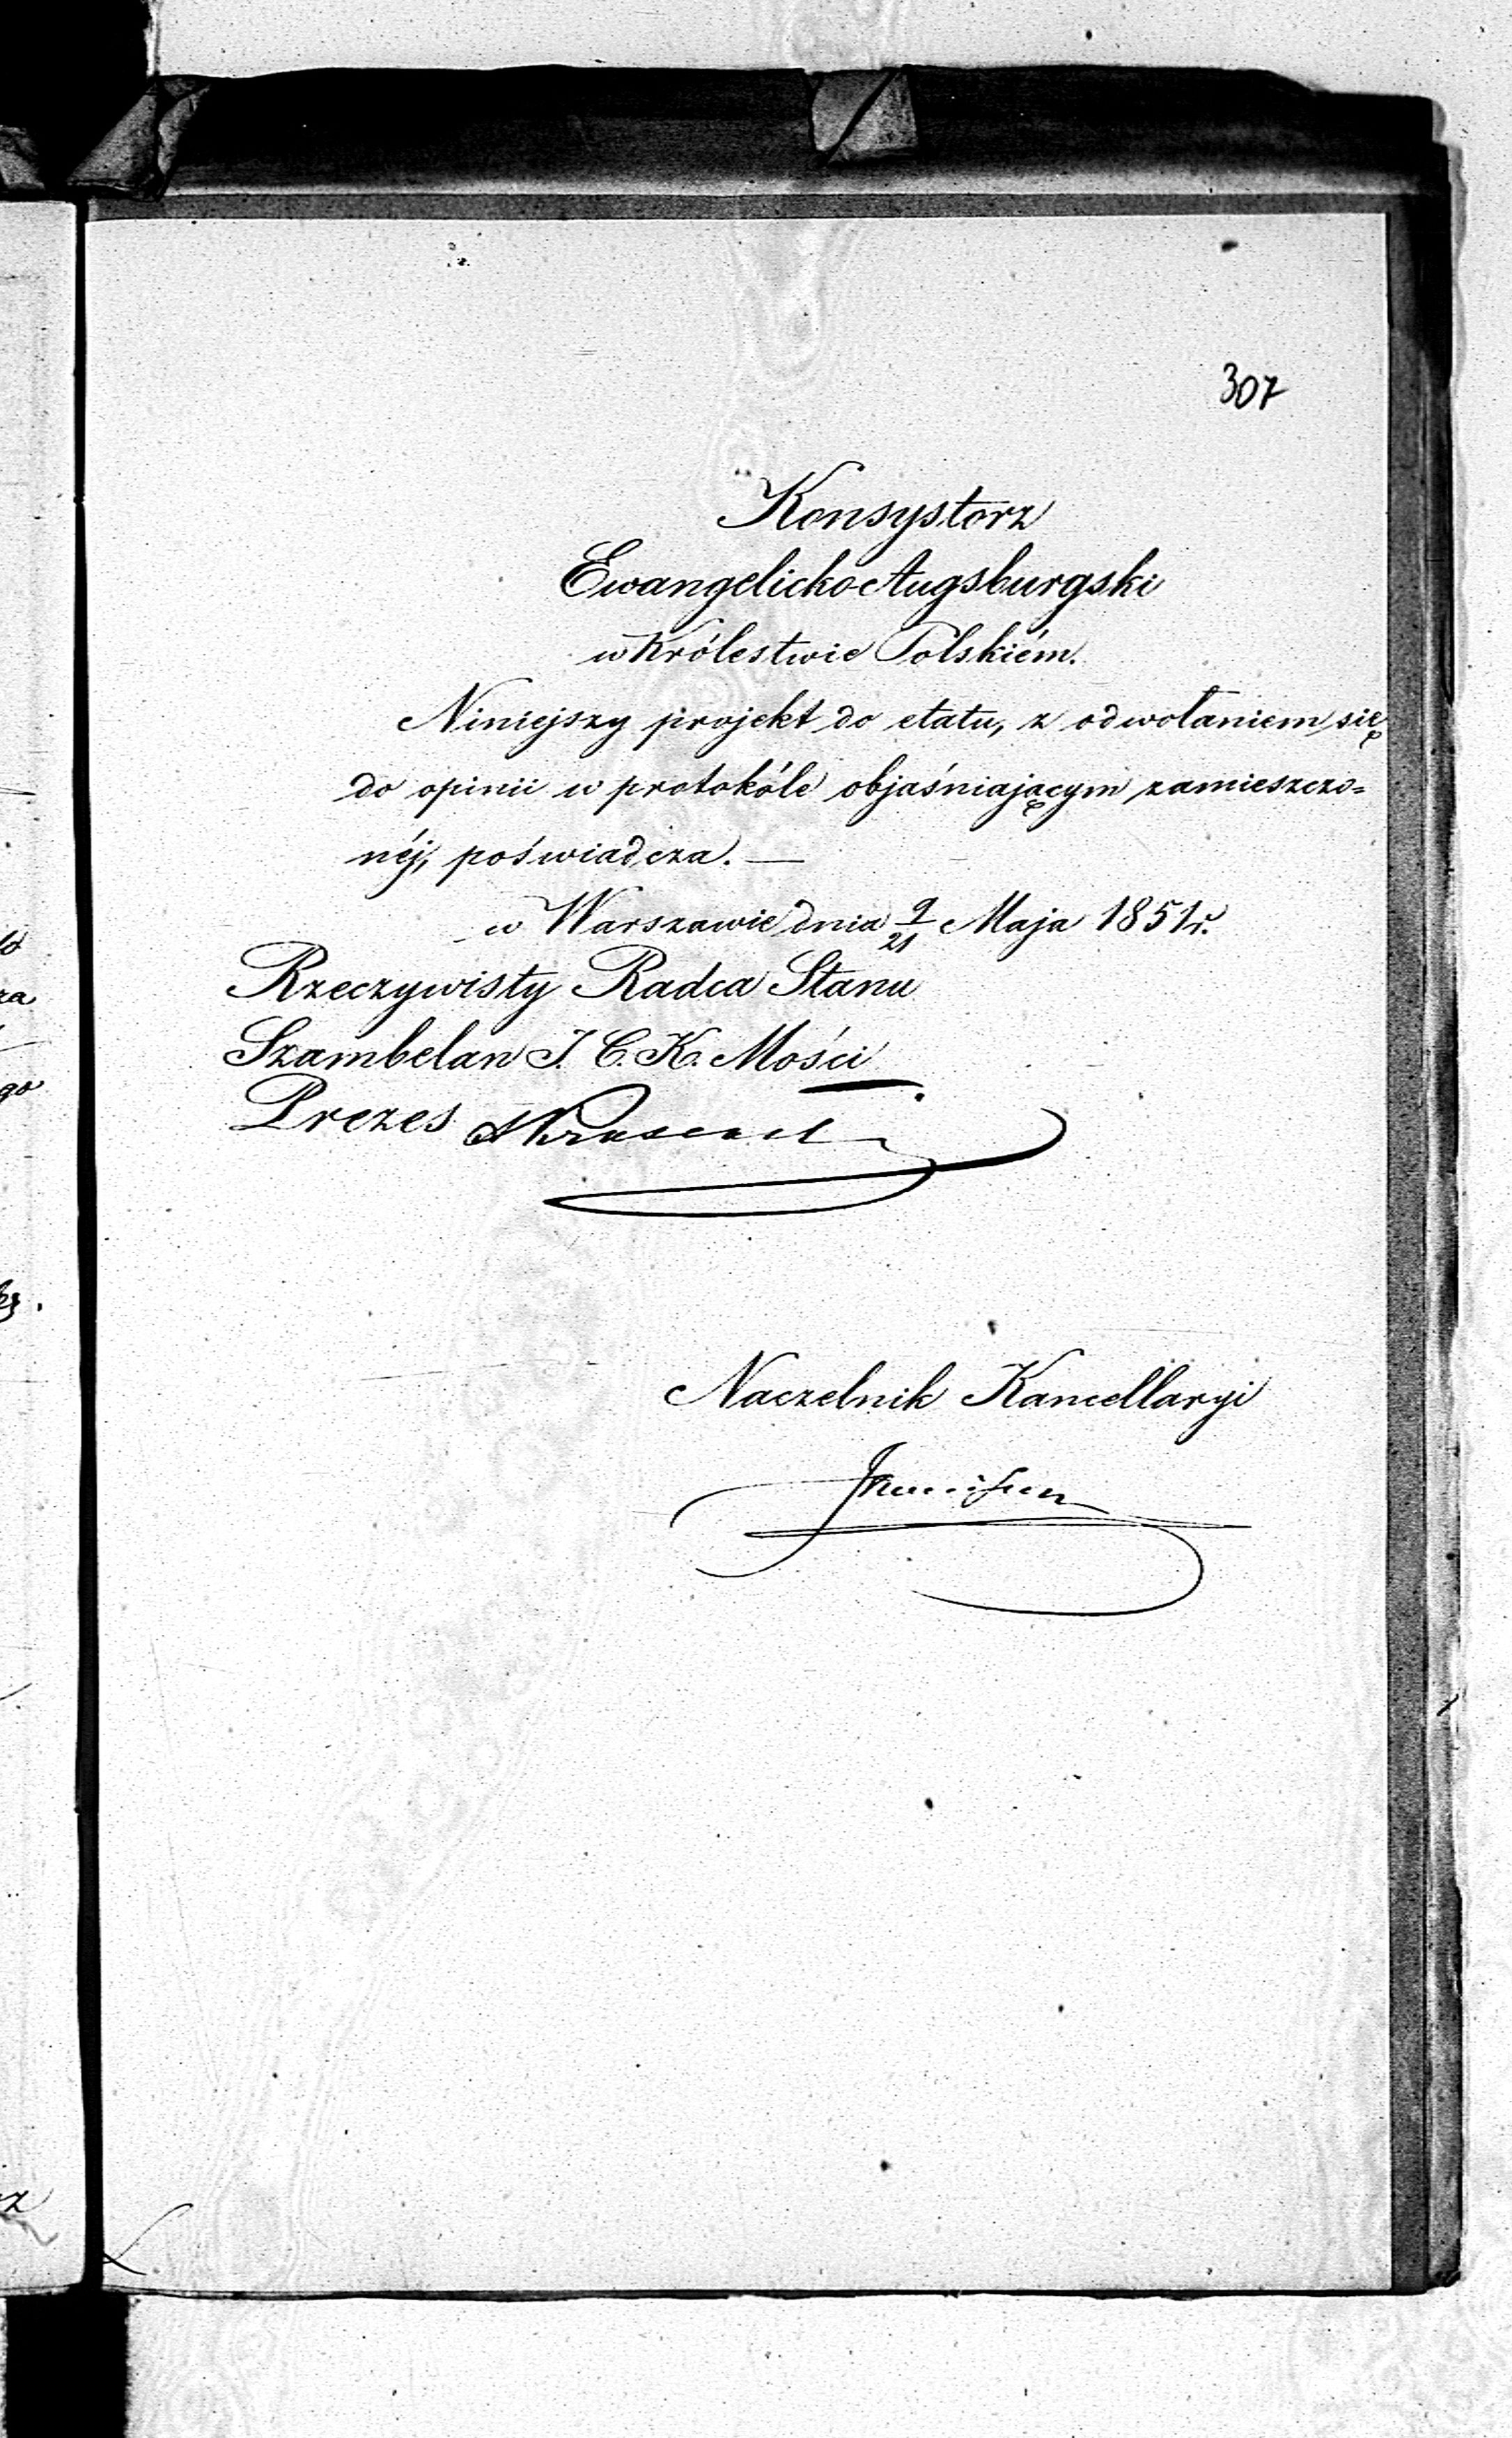 307
Konsystorz
Ewangelicko-Augsburgski
w Królestwie Polskiém.
Niniejszy projekt do etatu, z odwołaniem się
do opinii w protokóle objaśniającym zamieszczo=
néj, poświadcza. —
w Warszawie dnia 9/21 Maja 1851 r.
Rzeczywisty Radca Stanu
Szambelan J. C. K. Mości
Prezes
Naczelnik Kancellaryi